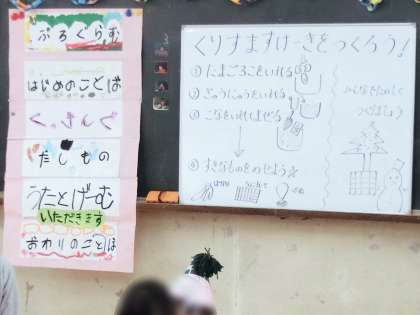 ぷろぐらむ
はじめのことば
だしもの
うたとげーむ
いただきます
おわりのことば
くりすますけーきをつくろう！
① たまごろこをいれる
② ぎゅうにゅうをいれる
③ こなをいれまぜる
④ すきなものをのせよう
みんなでたのしく
つくりましょう